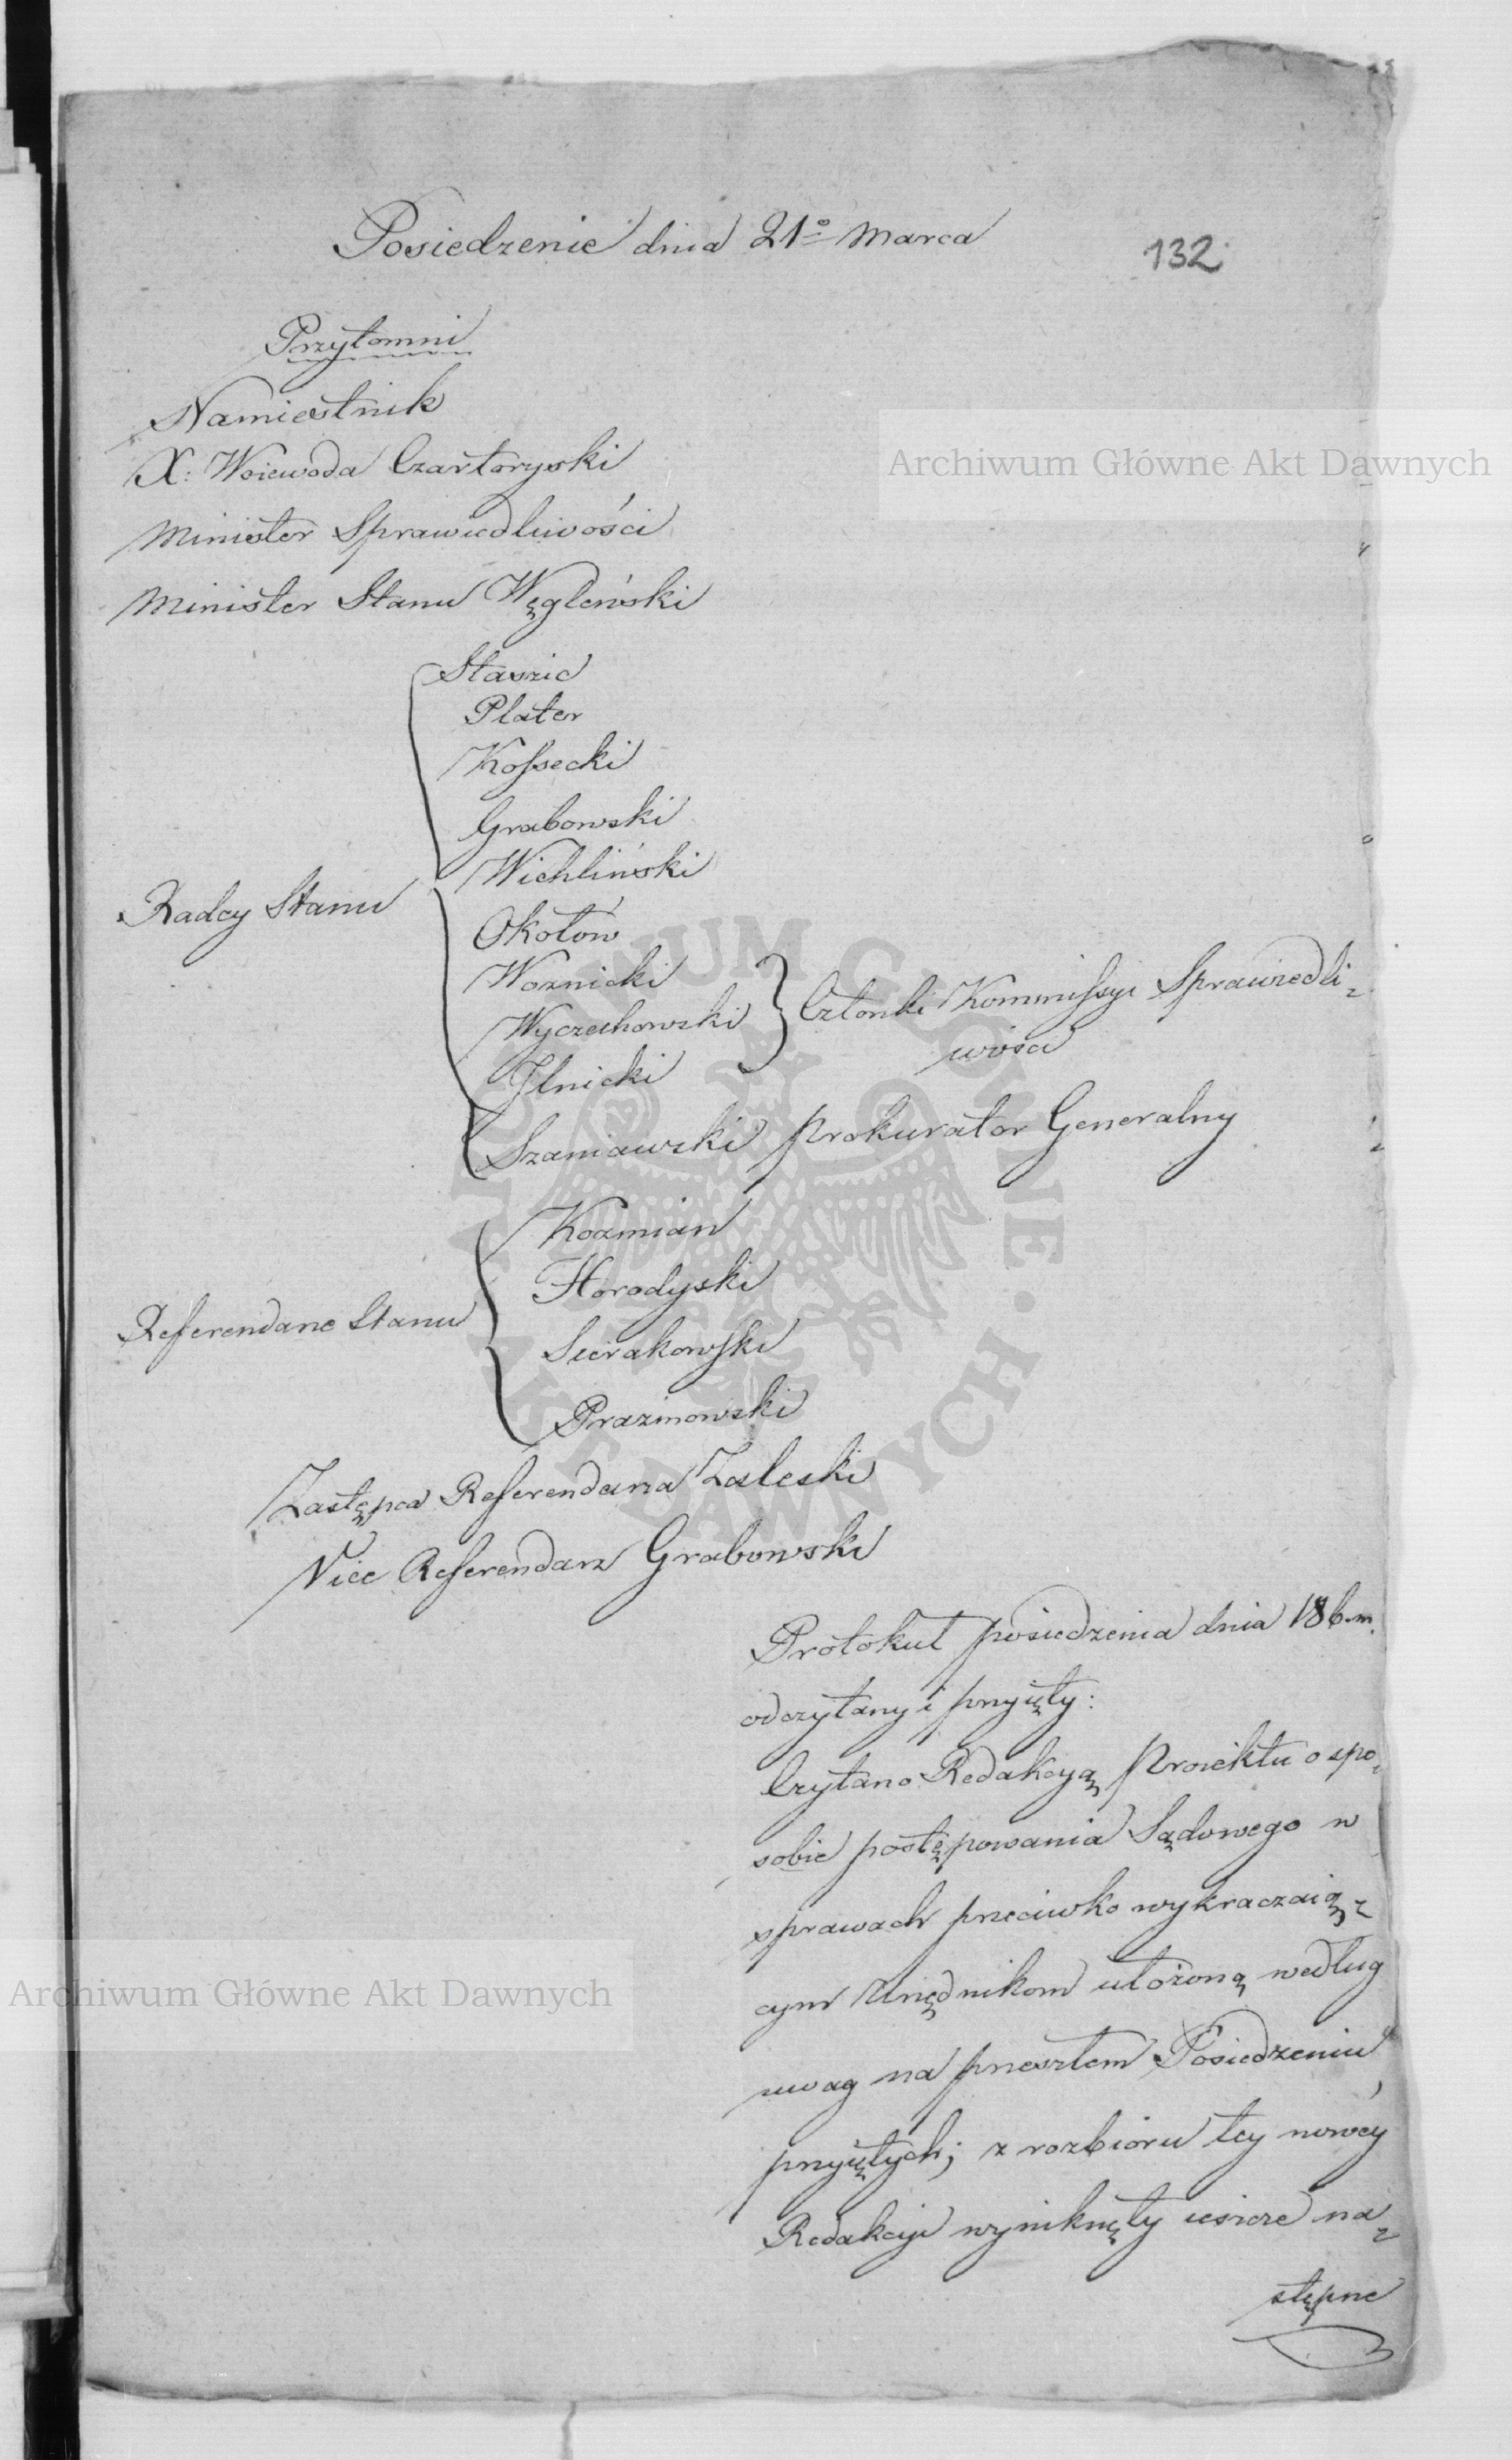 Posiedzenie dnia 21º Marca
132
Przytomni
Namiestnik
X: Woiewoda Czartoryski
Minister Sprawiedliwości
Minister Stanu Węgleński
Radcy Stanu
Staszic
Plater
Kossecki
Grabowski
Wichliński
Okołów
Woznicki
Wyczechowski
Członki Kommissyi Sprawiedli-
wości
Ilnicki
Szaniawski Prokurator Generalny
Referendarze Stanu
Kozmian
Horodyski
Sierakowski
Prazmowski
Zastępca Referendarza Zaleski
Vice Referendarz Grabowski
Protokuł posiedzenia dnia 18 b.m.
odczytany i przyięty:
Czytano Redakcyą Proiektu o spo-
sobie postępowania Sądowego w
sprawach przeciwko wykraczaią-
cym Urzędnikom ułożoną według
uwag na przeszłem Posiedzeniu
przyiętych; z rozbioru tey nowéy
Redakcyi wyniknęły ieszcze na-
stępne
Archiwum Główne Akt Dawnych
Archiwum Główne Akt Dawnych
ARCHIWUM GŁÓWNE AKT DAWNYCH